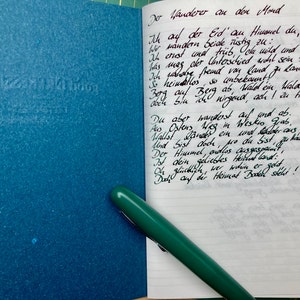 Der Wanderer an den Mond
Ich auf der Erd' am Himmel du,
Wir wandern beide rüstig zu:
Ich ernst und trüb, du mild und
Was mag der Unterschied wohl sein?
Ich wandre fremd von Land zu
So heimatlos, so unbekannt
Berg auf, Berg ab, Wald ein, Wald
Doch bin ich nirgend, ach!
Du aber wanderst auf und ab
Aus Ostens Wieg in Westens Grab,
Wallst Länder ein und Länder aus,
Und bist doch, wo du bist,
Der Himmel, endlos ausgespannt,
Ist dein geliebtes Heimatland:
O glücklich, wer wohin er geht,
Doch auf der Heimat Boden steht!